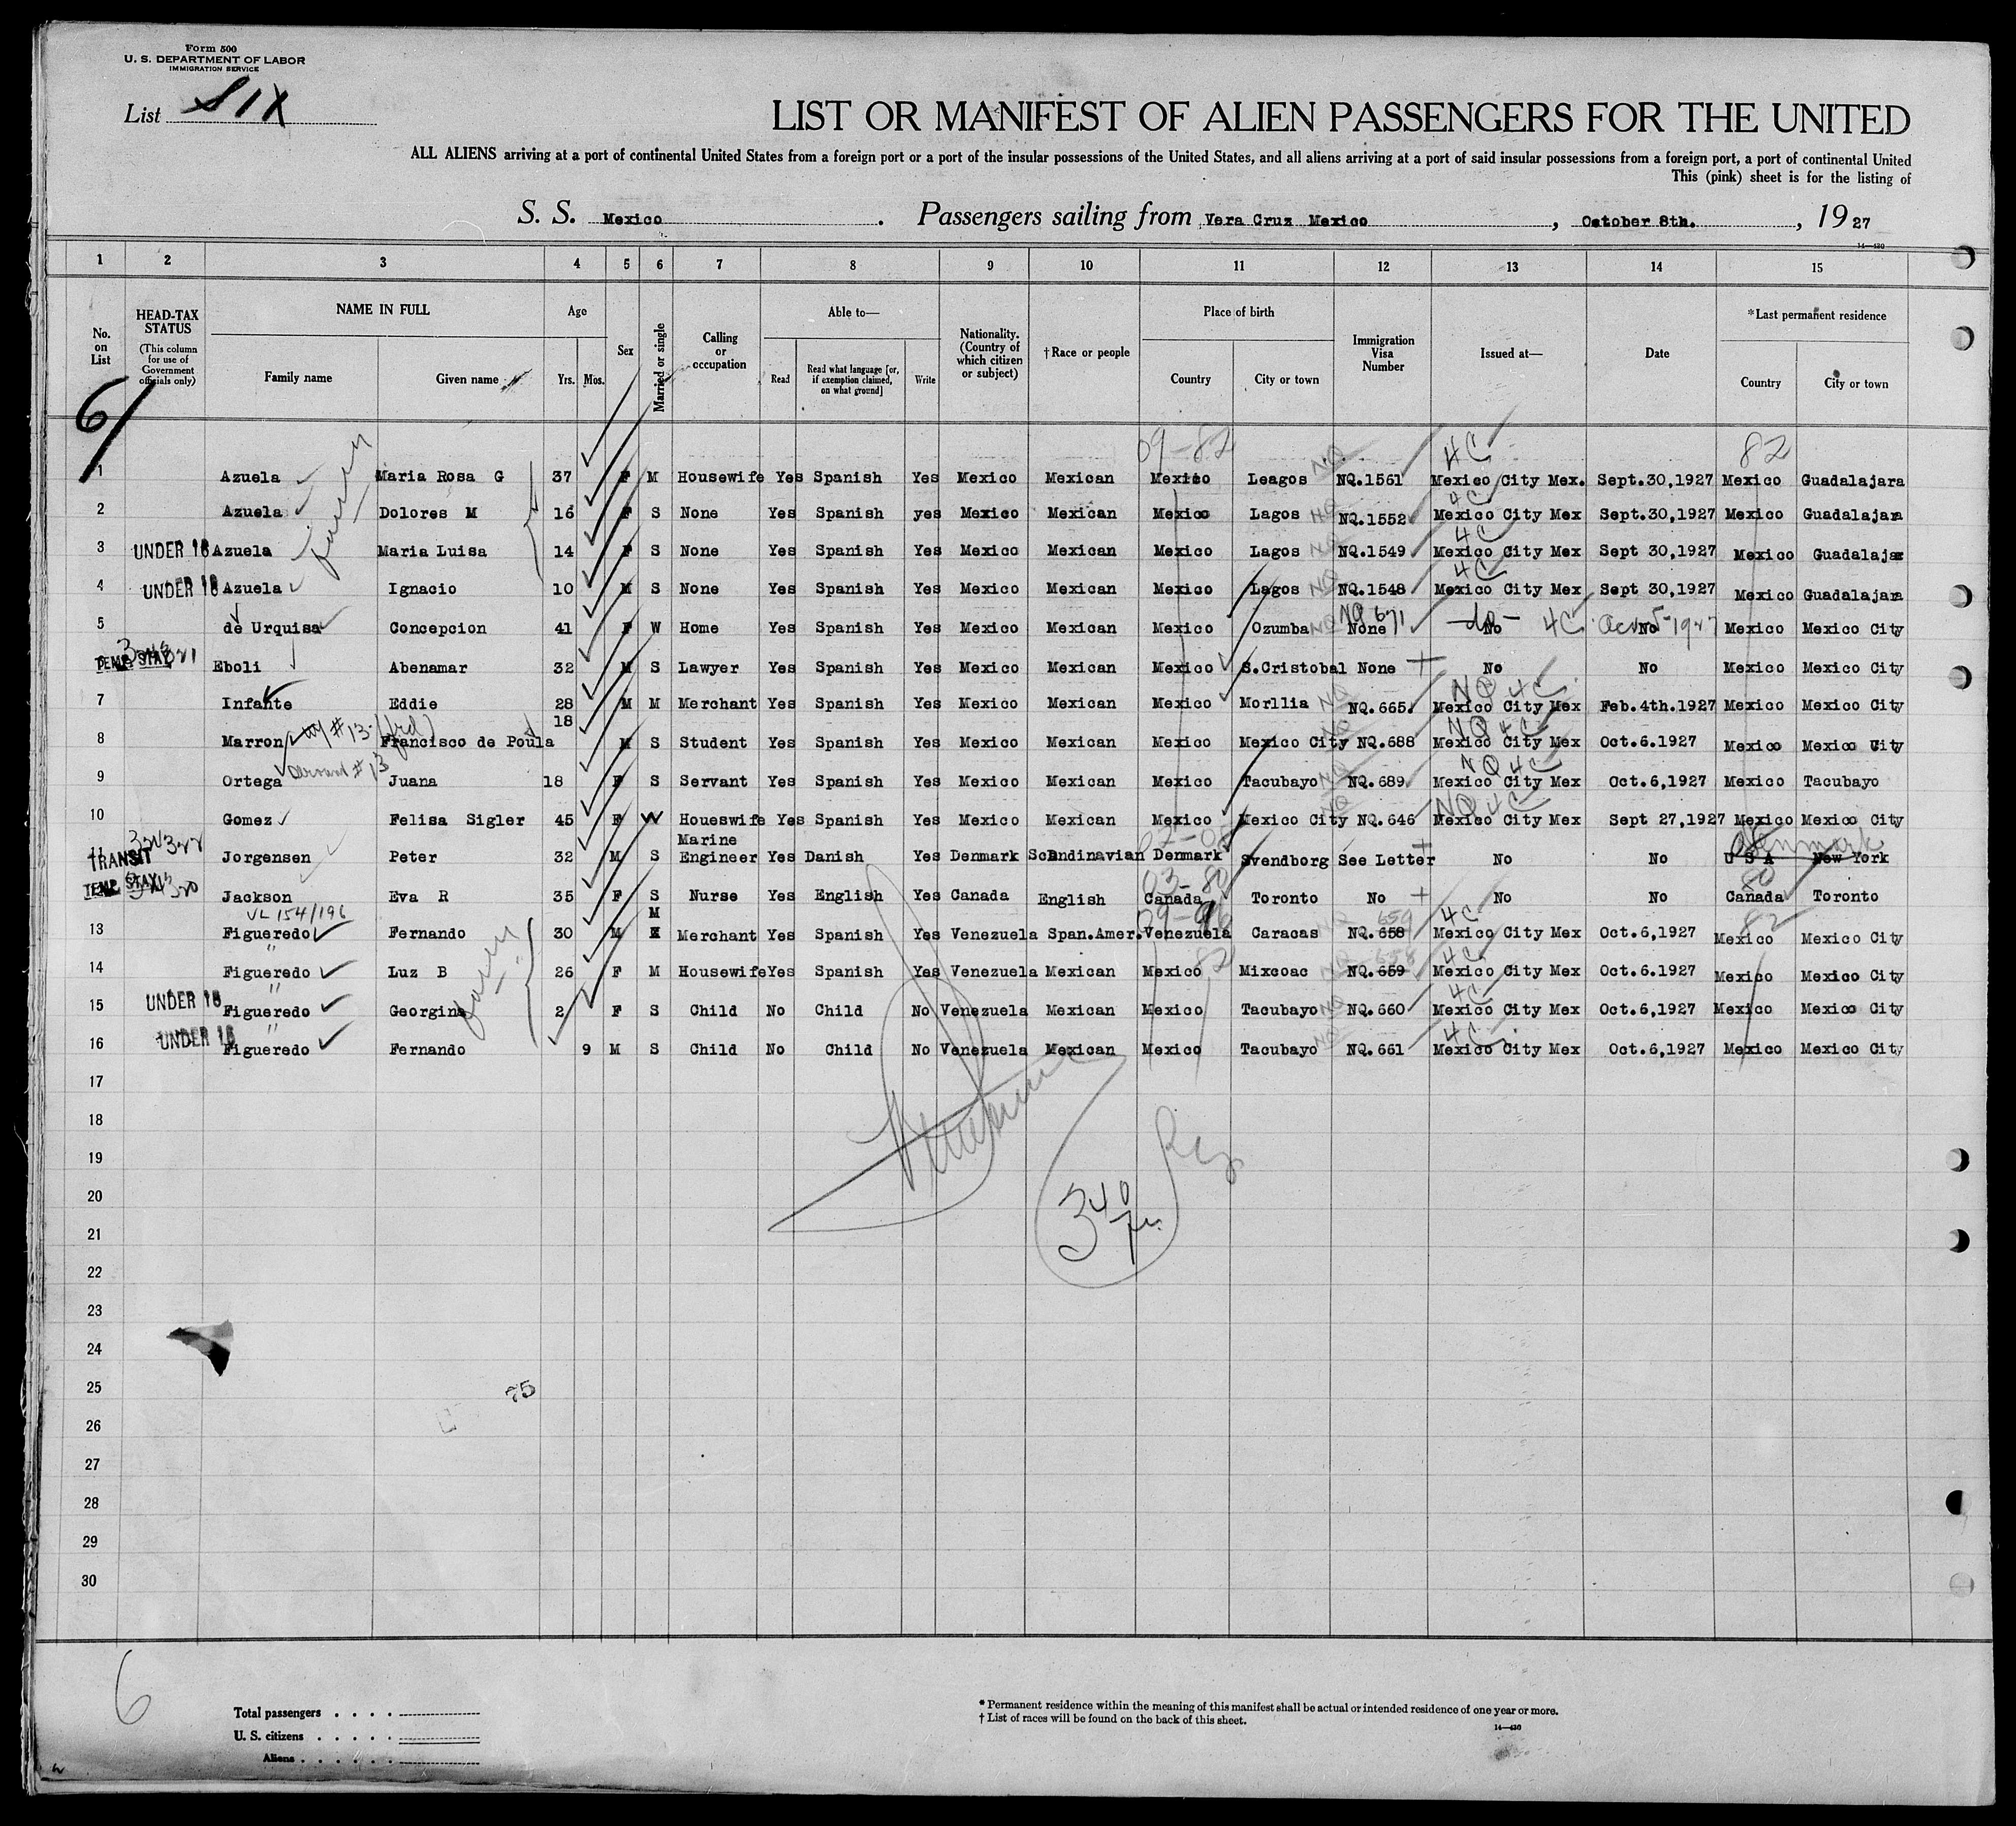 Form 500
U. S. DEPARTMENT OF LABOR
IMMIGRATION SERVICE
List SIX
LIST OR MANIFEST OF ALIEN PASSENGERS FOR THE UNITED
ALL ALIENS arriving at a port of continental United States from a foreign port or a port of the insular possessions of the United States, and all aliens arriving at a port of said insular possessions from a foreign port, a port of continental United
This (pink) sheet is for the listing of
S. S. Mexico . Passengers sailing from Vera Cruz Mexico , October 8th. , 19 27
14—430
1 2 3 4 5 6 7 8 9 10 11 12 13 14 15
No. on List
HEAD-TAX STATUS (This column for use of Government officials only)
NAME IN FULL Family name Given name
Age Yrs. Mos.
Sex
Married or single
Calling or occupation
Able to— Read Read what language [or, if exemption claimed, on what ground] Write
Nationality. (Country of which citizen or subject)
† Race or people
Place of birth Country City or town
Immigration Visa Number
Issued at—
Date
* Last permanent residence Country City or town
6
09-82 4C 82
1 Azuela Maria Rosa G 37 F M Housewife Yes Spanish Yes Mexico Mexican Mexico Leagos NQ.1561 Mexico City Mex. Sept.30,1927 Mexico Guadalajara
family
2 Azuela Dolores M 16 F S None Yes Spanish yes Mexico Mexican Mexico Lagos NQ.1552 4C Mexico City Mex Sept.30,1927 Mexico Guadalajara
3 UNDER 16 Azuela Maria Luisa 14 F S None Yes Spanish Yes Mexico Mexican Mexico Lagos NQ.1549 4C Mexico City Mex Sept 30,1927 Mexico Guadalaja
4 UNDER 16 Azuela Ignacio 10 M S None Yes Spanish Yes Mexico Mexican Mexico Lagos NQ.1548 4C Mexico City Mex Sept 30,1927 Mexico Guadalajara
5 de Urquisa Concepcion 41 F W Home Yes Spanish Yes Mexico Mexican Mexico Ozumba NQ 671 None -do- No 4C No 1927 Mexico Mexico City
TEMP. STAY Eboli Abenamar 32 M S Lawyer Yes Spanish Yes Mexico Mexican Mexico S.Cristobal None No No Mexico Mexico City
7 Infante Eddie 28 M M Merchant Yes Spanish Yes Mexico Mexican Mexico Morllia NQ.665. NQ 4C Mexico City Mex Feb.4th.1927 Mexico Mexico City
8 Marron Francisco de Poula 18 M S Student Yes Spanish Yes Mexico Mexican Mexico Mexico City NQ.688 NQ 4C Mexico City Mex Oct.6.1927 Mexico Mexico City
servant #13
9 Ortega Juana 18 F S Servant Yes Spanish Yes Mexico Mexican Mexico Tacubayo NQ.689 NQ 4C Mexico City Mex Oct.6,1927 Mexico Tacubayo
10 Gomez Felisa Sigler 45 F W Houeswife Yes Spanish Yes Mexico Mexican Mexico Mexico City NQ.646 NQ 4C Mexico City Mex Sept 27,1927 Mexico Mexico City
11 TRANSIT Jorgensen Peter 32 M S Marine Engineer Yes Danish Yes Denmark Scandinavian Denmark Svendborg See Letter No No U S A New York Denmark
TEMP. STAY Jackson Eva R 35 F S Nurse Yes English Yes Canada English 03-80 Canada Toronto No No No 80 Canada Toronto
VL 154/196
13 Figueredo Fernando 30 M M Merchant Yes Spanish Yes Venezuela Span.Amer. Venezuela Caracas NQ.658 659 4C Mexico City Mex Oct.6,1927 82 Mexico Mexico City
14 Figueredo Luz B 26 F M Housewife Yes Spanish Yes Venezuela Mexican Mexico Mixcoac NQ.659 658 4C Mexico City Mex Oct.6,1927 Mexico Mexico City
family
15 UNDER 16 Figueredo Georgina 2 F S Child No Child No Venezuela Mexican Mexico Tacubayo NQ.660 4C Mexico City Mex Oct.6,1927 Mexico Mexico City
16 UNDER 16 Figueredo Fernando 9 M S Child No Child No Venezuela Mexican Mexico Tacubayo NQ.661 4C Mexico City Mex Oct.6,1927 Mexico Mexico City
17
18
19
20
21
22
23
24
25
26
27
28
29
30
6
Total passengers
U. S. citizens
Aliens
* Permanent residence within the meaning of this manifest shall be actual or intended residence of one year or more.
† List of races will be found on the back of this sheet.
14—430